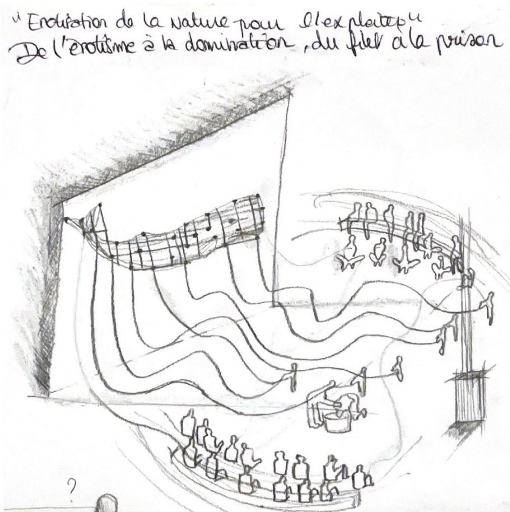 "Erotisation de la Nature pour l'exploiter"
De l'érotisme à la domination, du filet à la prison
?